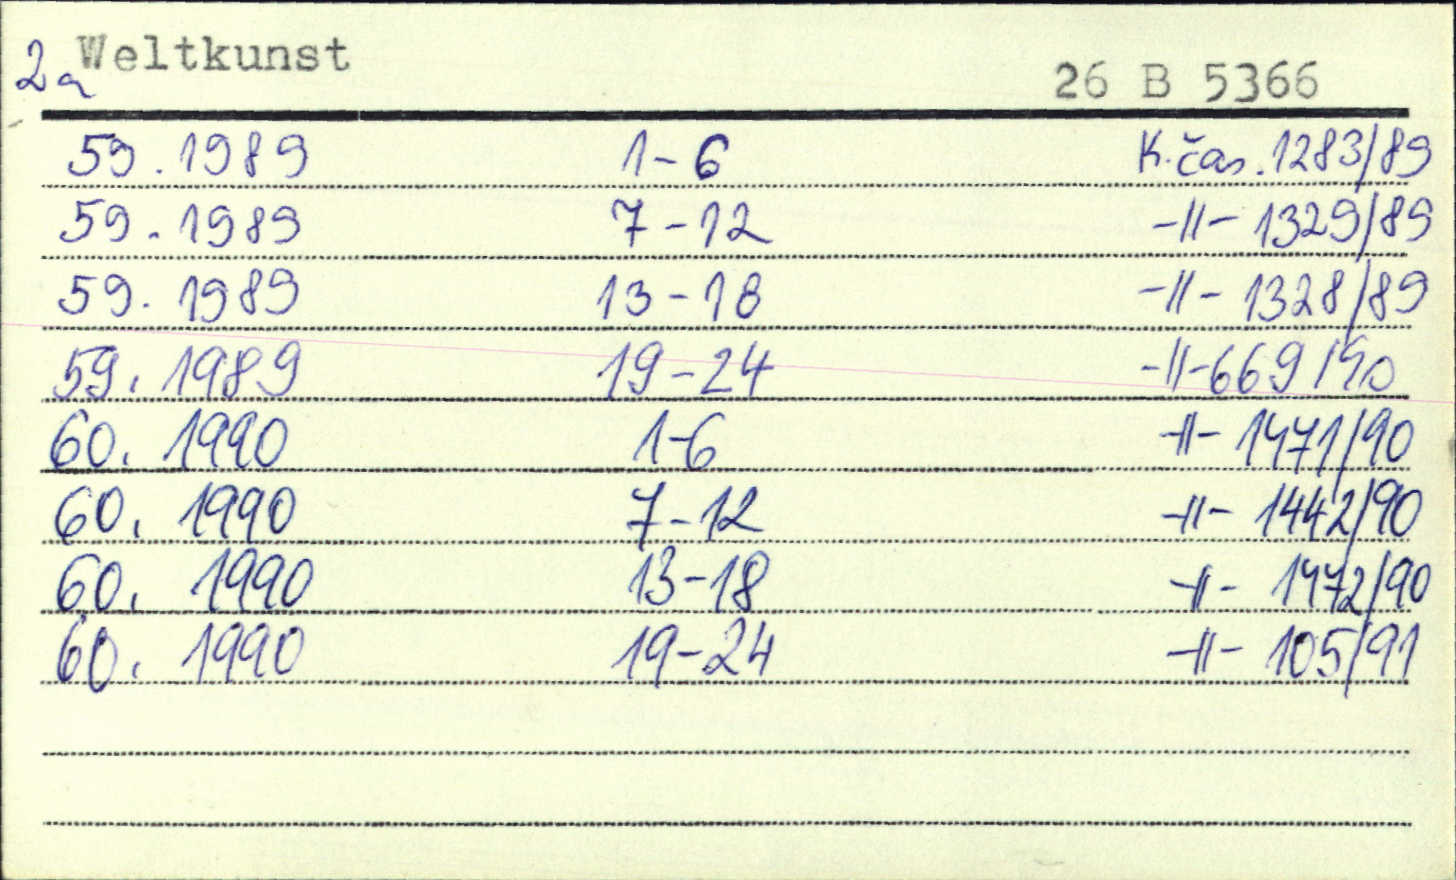 2a Weltkunst 26 B 5366
59. 1989 1-6 K. čas. 1283/89
59. 1989 7-12 -||- 1329/89
59. 1989 13-18 -||- 1328/89
59. 1989 19-24 -||- 669/90
60. 1990 1-6 -||- 1471/90
60. 1990 7-12 -||- 1442/90
60. 1990 13-18 -||- 1472/90
60. 1990 19-24 -||- 105/91